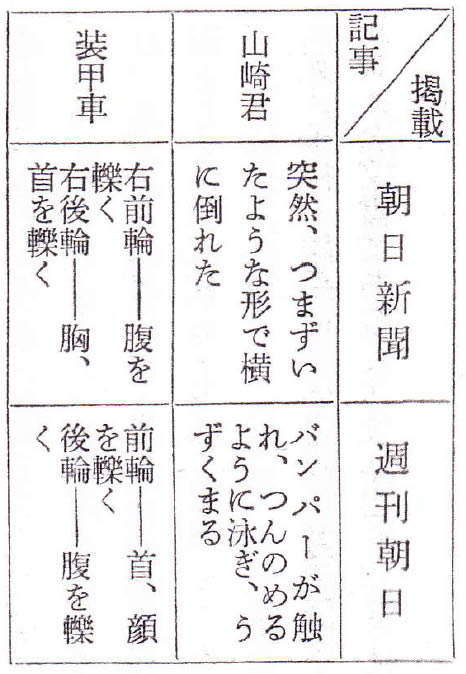 掲載
記事
朝日新聞
週刊朝日
山崎君
突然、つまずい
たような形で横
に倒れた
バンパーが触
れ、つんのめる
ように泳ぎ、う
ずくまる
装甲車
右前輪――腹を
轢く
右後輪――胸、
首を轢く
前輪――首、顔
を轢く
後輪――腹を轢
く